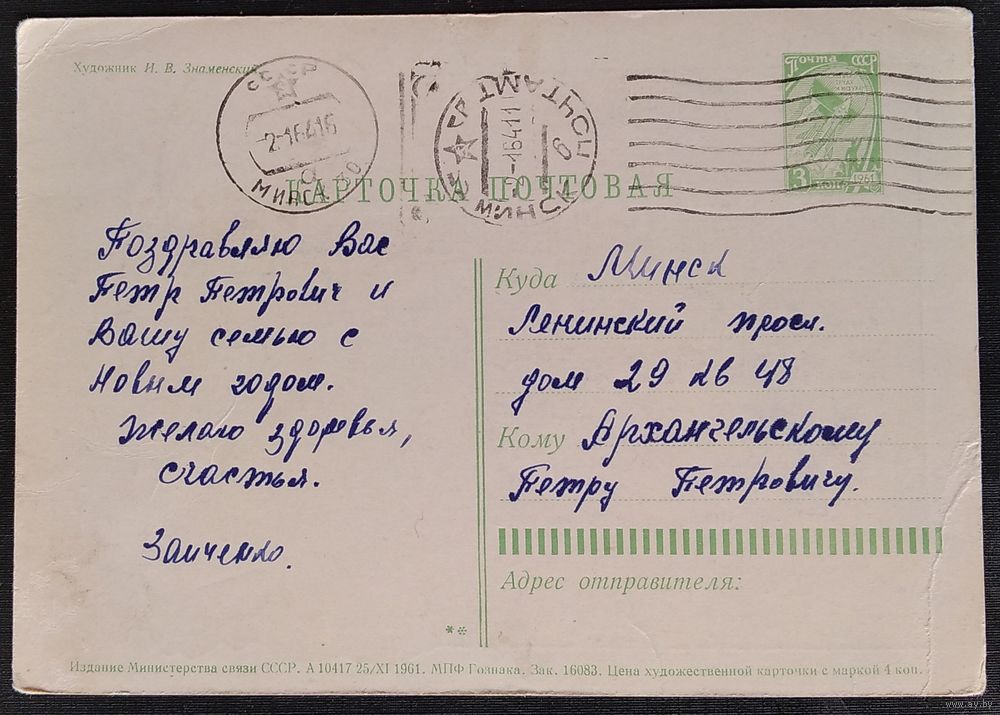 Художник И. В. Знаменский
СССР
-2-1 64 16
МИНСК
ПОЧТАМТ
-2-1 64 11
МИНСК 9
Почта СССР
3 коп
1961
КАРТОЧКА ПОЧТОВАЯ
Поздравляю Вас
Петр Петрович и
Вашу семью с
Новым годом.
Желаю здоровья,
счастья.
Заиченко.
Куда Минск
Ленинский просп.
дом 29 кв 48
Кому Архангельскому
Петру Петровичу.
Адрес отправителя:
**
Издание Министерства связи СССР. А 10417 25/XI 1961. МПФ Гознака. Зак. 16083. Цена художественной карточки с маркой 4 коп.
www.ay.by